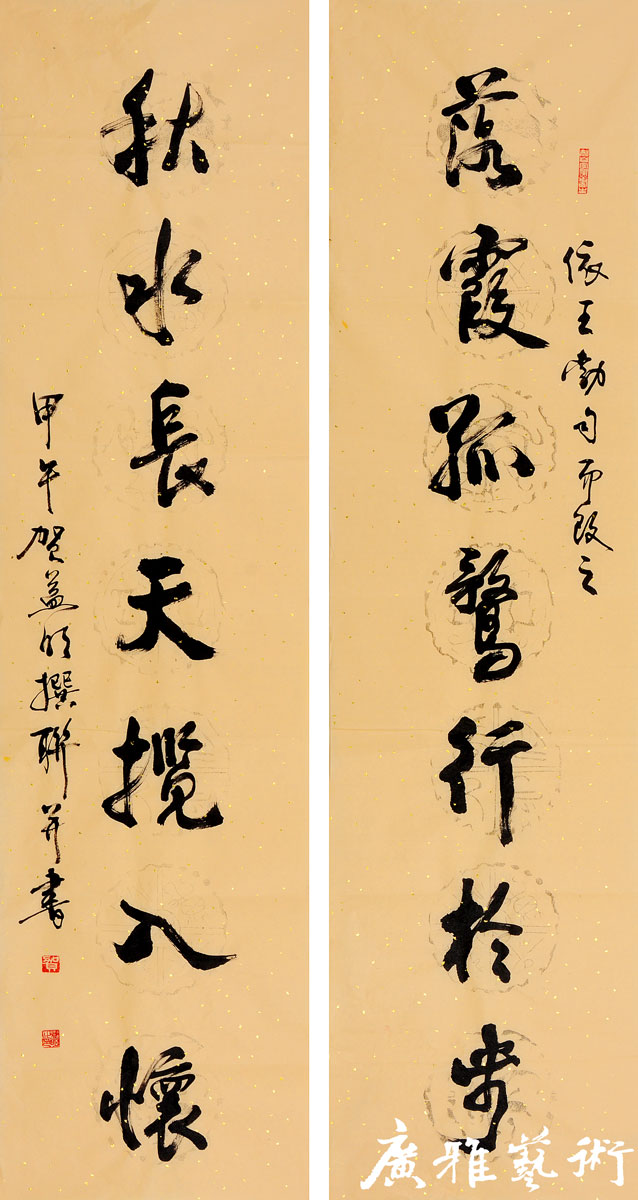 依王勃句而改之
落霞孤鶩行於步
秋水長天攬入懷
甲午賀益明撰聯并書
廣雅藝術